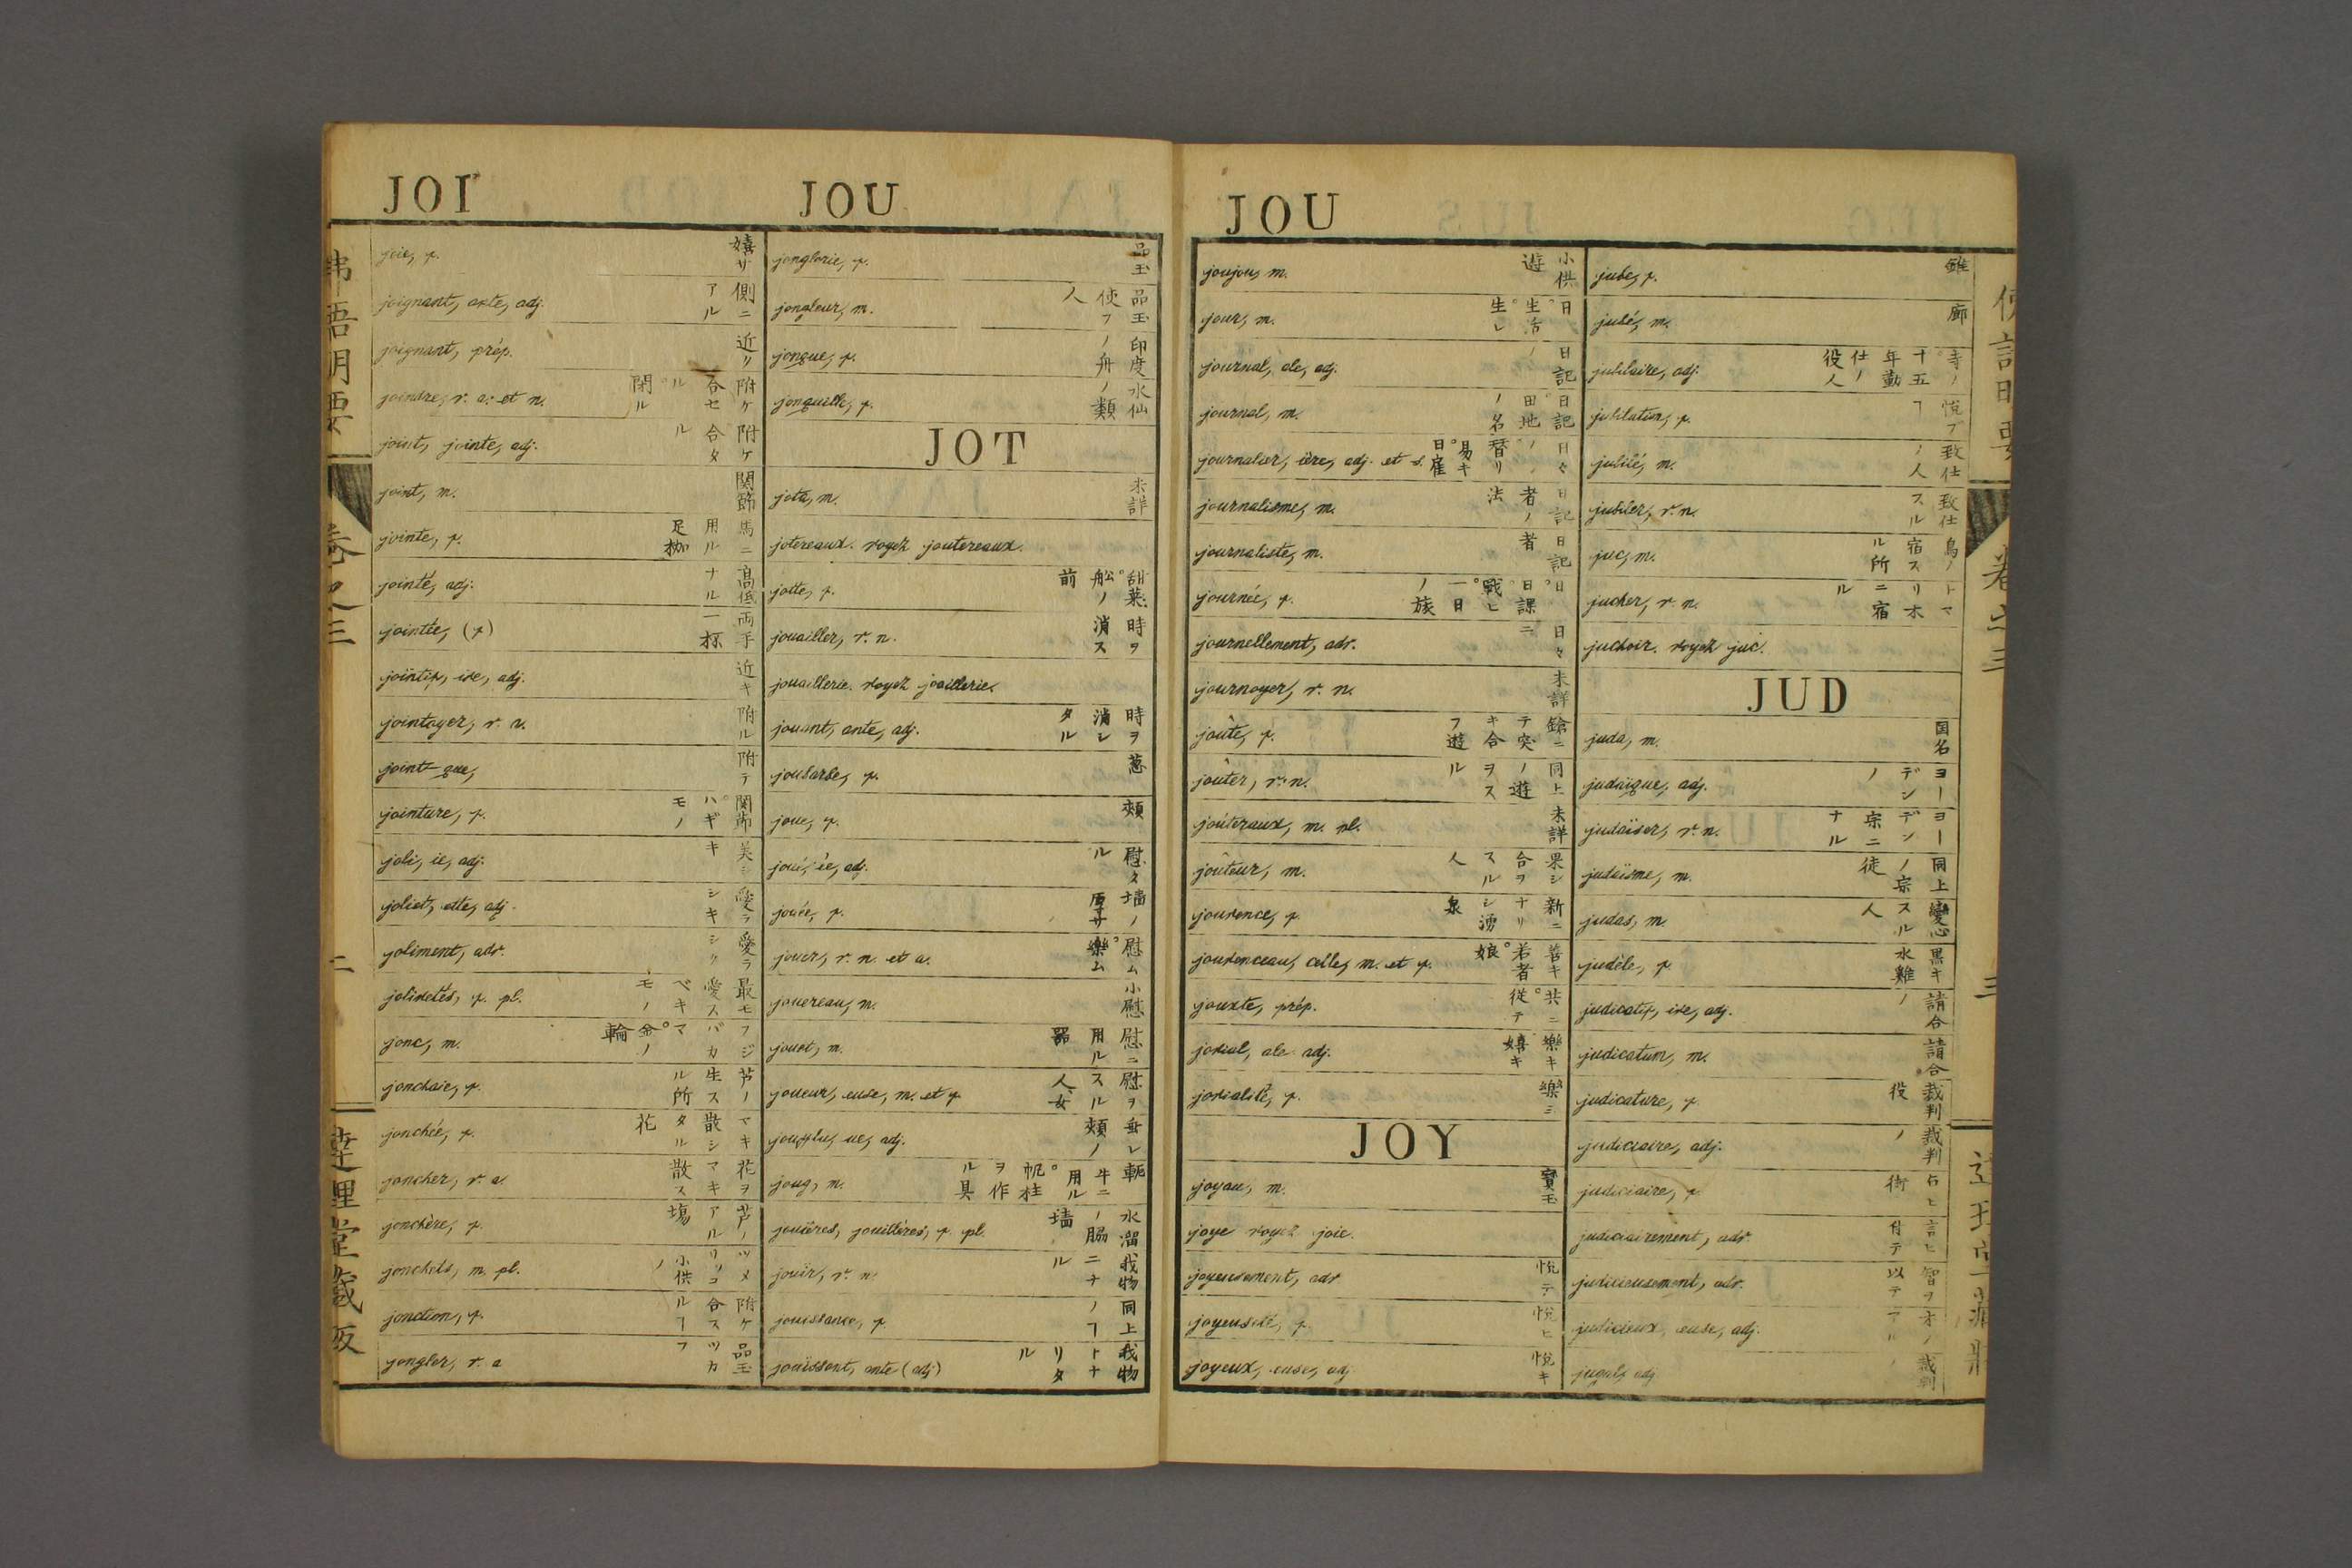 JOI
JOU
joie, f. 嬉サ
joignant, ante, adj. 側ニアル
joignant, prép. 近リ
joindre, v. a. et n. 附ケ合セル。閉ル
joint, jointe, adj. 附ケ合タル
joint, m. 関節
jointe, f. 馬ニ用ル足枷
jointé, adj. 高低ナル
jointée, (f) 両手一抔
jointif, ive, adj. 近キ
jointoyer, v. a. 附ル
joint-que, 附テ
jointure, f. 関節。ハギモノ
joli, ie, adj. 美シキ
joliet, ette, adj. 愛ラシキ
joliment, adv. 愛ラシク
jolivetés, f. pl. 最モ愛スベキモノ
jonc, m. フジバカマ。金ノ輪
jonchaie, f. 芦ノ生スル所
jonchée, f. マキ散シタル花
joncher, v. a. 花ヲマキ散ス
jonchère, f. 芦ノアル場
jonchets, m. pl. 小供ノ
jonction, f. 附ケ合スルヿ
jongler, v. a 品玉ツカフ
jonglerie, f. 品玉
jongleur, m. 品玉使フ人
jonque, f. 印度ノ舟
jonquille, f. 水仙ノ類
JOT
jota, m. 未詳
jotereaux. voyez joutereaux.
jotte, f. 甜菜。舩ノ前
jouailler, v. n. 時ヲ消ス
jouaillerie. voyez joaillerie.
jouant, ante, adj. 時ヲ消シタル
joubarbe, f. 葱
joue, f. 頬
joué, ée, adj. 慰タル
jouée, f. 墻ノ厚サ
jouer, v. n. et a. 慰ム。樂ム
jouereau, m. 小慰
jouet, m. 慰ニ用ル器
joueur, euse, m. et f 慰ヲスル人、女
joufflu, ue, adj. 垂レ頬ノ
joug, m. 軛 牛ニ用ル。帆柱ヲ作ル具
jouières, jouillères, f. pl. 水溜ノ脇墻
jouir, v. n. 我物ニナル
jouissance, f 同上ノヿ
jouissant, ante (adj) 我物トナリタル
JOU
joujou, m. 小供遊
jour, m. 日。生活。生レ
journal, ale, adj. 日記ノ
journal, m. 日記。田地ノ名
journalier, ière, adj. et s. 日々ノ。替リ易キ。日雇
journalisme, m. 日記者ノ法
journaliste, m. 日記者
journée, f. 日。日課。戰ヒ。一日ノ旅
journellement, adv. 日々ニ
journoyer, v. n. 未詳
joûte, f. 鎗ニテ突キ合フ遊
joûter, v. n. 同上ノ遊ヲスル
joûteraux, m. pl. 未詳
joûteur, m. 果シ合ヲスル人
jouvence, f. 新ニナリシ湧泉
jouvenceau, celle, m. et f. 善キ若者。娘
jouxte, prép. 共ニ。從テ
jovial, ale adj. 樂キ嬉キ
jovialité, f. 樂ミ
JOY
joyau, m. 寶玉
joye voyez joie.
joyeusement, adv. 悦テ
joyeuseté, f. 悦ヒ
joyeux, euse, adj. 悦キ
jube, f.
jubé, m. 廊
jubilaire, adj. 寺ノ。五十年勤仕ノ役人
jubilation, f. 悦フヿ
jubilé, m. 致仕ノ人
jubiler, v. n. 致仕スル
juc, m. 鳥ノ宿スル所
jucher, v. n. トマリ木ニ宿ル
juchoir. voyez juc.
JUD
juda, m. 国名
judaïque, adj. ヨーデンノ
judaïser, v. n. ヨーデン宗ニナル
judaïsme, m. 同上ノ宗徒
judas, m. 變心スル人
judèle, f. 黒キ水雞
judicatif, ive, adj. 請合ノ
judicatum, m. 請合
judicature, f. 裁判役
judiciaire, adj. 裁判ノ
judiciaire, f.
judiciairement, adv. 言ヒ付テ
judicieusement, adv. 智ヲ以テ
judicieux, euse, adj. 才ノアル
jugal, adj 裁判ノ